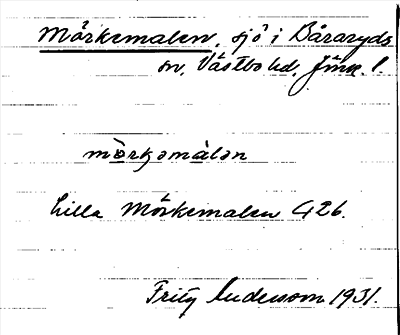 Mörkemalen, sjö i Båraryds
sn, Västbo hd, Jönk. l.
mörkəmàlən
Lilla Mörkemalen G26.
Fritz Andersson 1931.